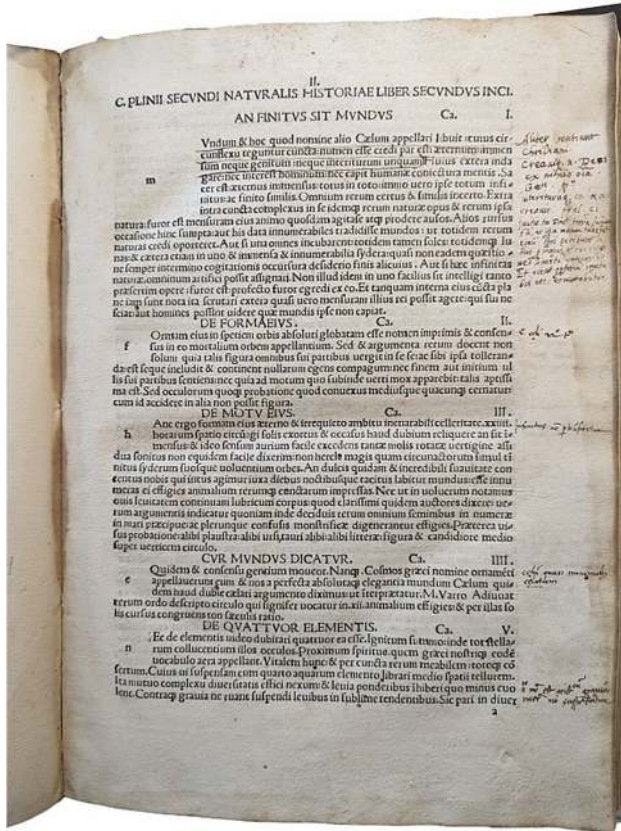 II.
C. PLINII SECVNDI NATVRALIS HISTORIAE LIBER SECVNDVS INCI.
AN FINITVS SIT MVNDVS Ca. I.
Vndum & hoc quod nomine alio Cælum appellari libuit: cuius cir-
cunflexu teguntur cuncta: numen esse credi par est: æternum: immen
sum: neque genitum: neque interiturum unquam: huius extera inda
m
gare: nec interest hominum: nec capit humanæ coniectura mentis. Sa
cer est: æternus: immensus: totus in toto: immo uero ipse totum: infi-
nitus: ac finito similis. Omnium rerum certus & similis incerto. Extra
intra cuncta complexus in se: idemq; rerum naturæ opus & rerum ipsa
natura: furor est mensuram eius animo quosdam agitasse atq; prodere ausos. Alios rursus
occasione hinc sumpta: aut his data innumerabiles tradidisse mundos: ut totidem rerum
naturas credi oporteret. Aut si una omnes incubaret: totidem tamen soles: totidemq; lu
nas: & cætera etiam in uno & immensa & innumerabilia sydera: quasi non eadem quæstio-
ne semper in termino cogitationis occursura desiderio finis alicuius. Aut si hæc infinitas
naturæ: omnium artifici possit assignari. Non illud idem in uno facilius sit intelligi tanto
præsertim opere: furor est: profecto furor egredi ex eo. Et tanquam interna eius cuncta pla
ne iam sunt nota: ita scrutari extera: quasi uero mensuram illius rei possit agere: qui sui ne
sciat: aut homines possint uidere quæ mundis ipse non capiat.
DE FORMA EIVS. Ca. II.
Ormam eius in speciem orbis absoluti globatam esse nomen in primis & consen-
f
sus in eo mortalium orbem appellantium. Sed & argumenta rerum docent non
solum quia talis figura omnibus sui partibus uergit in se: se ac sibi ipsa tolleran-
da est: seque includit & continet nullarum egens compagum: nec finem aut initium ul
lis sui partibus sentiens: nec quia ad motum quo subinde uerti mox apparebit: talis aptissi
ma est. Sed occulorum quoq; probatione quod conuexus mediusque quacunq; cernatur:
cum id accidere in alia non possit figura.
DE MOTV EIVS. Ca. III.
Anc ergo formam eius æterno & irrequieto ambitu inenarrabili celleritate .xxiiii.
h
horarum spatio circuagi solis exortus & occasus haud dubium reliquere an sit i-
mensus: & ideo sensum aurium facile excedens tantæ molis rotatæ uertigine assi
dua sonitus non equidem facile dixerim: non hercle magis quam circumactorum simul ti
nitus syderum suosque uoluentium orbes. An dulcis quidam & incredibili suauitate con
centus nobis qui intus agimur iuxta diebus noctibusque tacitus labitur mundus: esse innu
meras ei effigies animalium rerumq; cunctarum impressas. Nec ut in uolucrum notamus
ouis leuitatem continuam lubricum corpus: quod clarissimi quidem auctores dixere: ue-
rum argumentis indicatur quoniam inde deciduis rerum omnium seminibus in numeræ
in mari præcipue: ac plerunque confusis monstrificæ digenerantur effigies. Præterea ui-
sus probatione: alibi plaustra: alibi ursi, tauri alibi: alibi litteræ figura & candidiore medio
super uerticem circulo.
CVR MVNDVS DICATVR. Ca. IIII.
Quidem & consensu gentium moueor. Nanq; Cosmos græci nomine ornamēti
e
appellauerunt eum & nos a perfecta absolutaq; elegantia mundum Cælum qui-
dem haud dubie cælati argumento diximus: ut iterprætatur. M. Varro Adiuuat
rerum ordo descripto circulo qui signifer uocatur in .xii. animalium effigies & per illas so
lis cursus congruens tot sæculis ratio.
DE QVATTVOR ELEMENTIS. Ca. V.
Ec de elementis uideo dubitari quatuor ea esse. Ignitum summo: inde tot stella-
n
rum collucentium illos occulos. Proximum spiritus: quem græci nostriq; eodē
uocabulo aera appellant. Vitalem hunc & per cuncta rerum meabilem: totoq; cō
sertum. Cuius ui suspensam cum quarto aquarum elemento librari medio spatii tellurem.
Ita mutuo complexu diuersitatis effici nexum: & leuia ponderibus ihiberi quo minus euo
lent. Contraq; grauia ne ruant suspendi leuibus in sublime tendentibus. Sic pari in diuer
a
Aliter sentiunt
Christiani